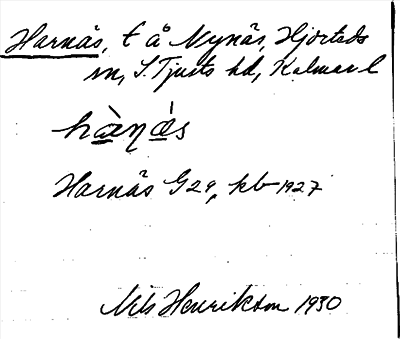 Harnäs, t å Nynäs, Hjorteds
sn, S. Tjusts hd, Kalmar l
hàṇás
Harnäs G 29, kb 1927
Nils Henrikson 1930